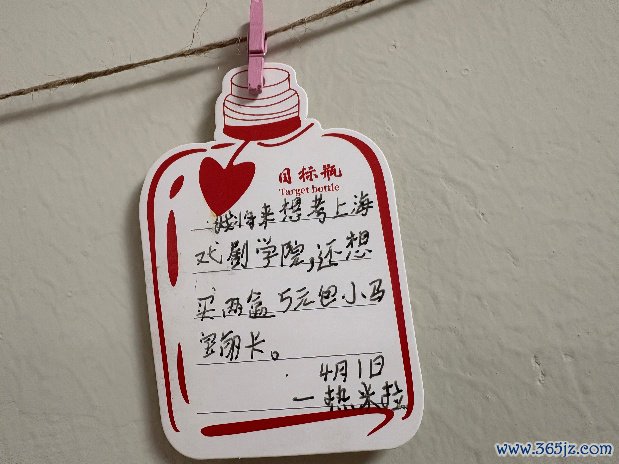 目标瓶
Target bottle
我将来想考上海
戏剧学院,还想
买两盒5元包小马
宝莉卡。
4月1日
一热米拉
www.365jz.com